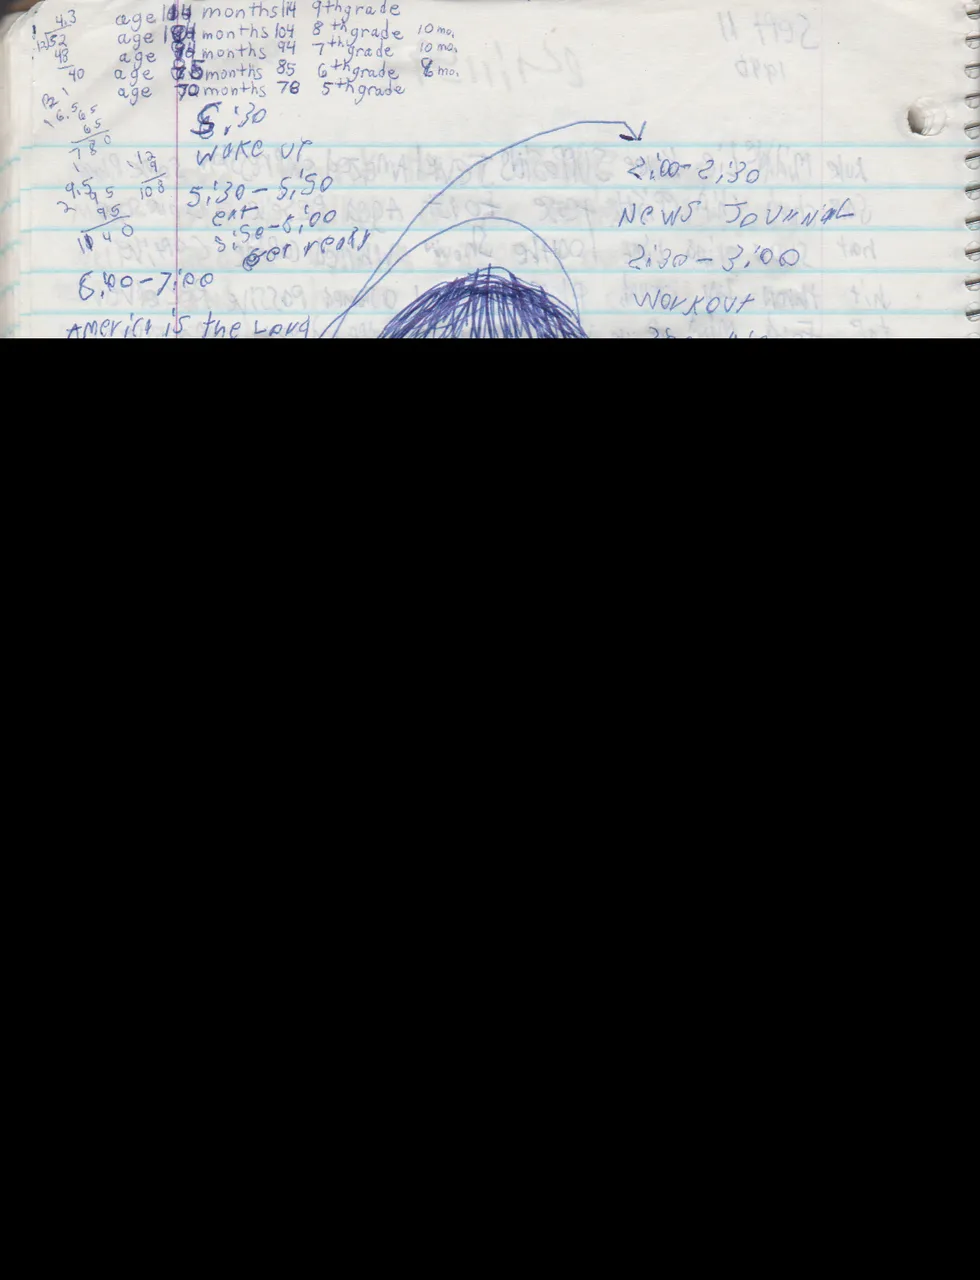 age 114 months 114 9th grade
age 104 months 104 8th grade 10 mo.
age 94 months 94 7th grade 10 mo.
age 85 months 85 6th grade 8 mo.
age 70 months 78 5th grade
4.3
12 52
48
40
6.5 65
65
780
12
9
108
9.5 95
95
1140
5:30
WOKE UP
5:30-5:50
eat
5:50-6:00
get ready
6:00-7:00
America is the Lord
2:00-2:30
NEWS JOURNAL
2:30-3:00
WORKOUT